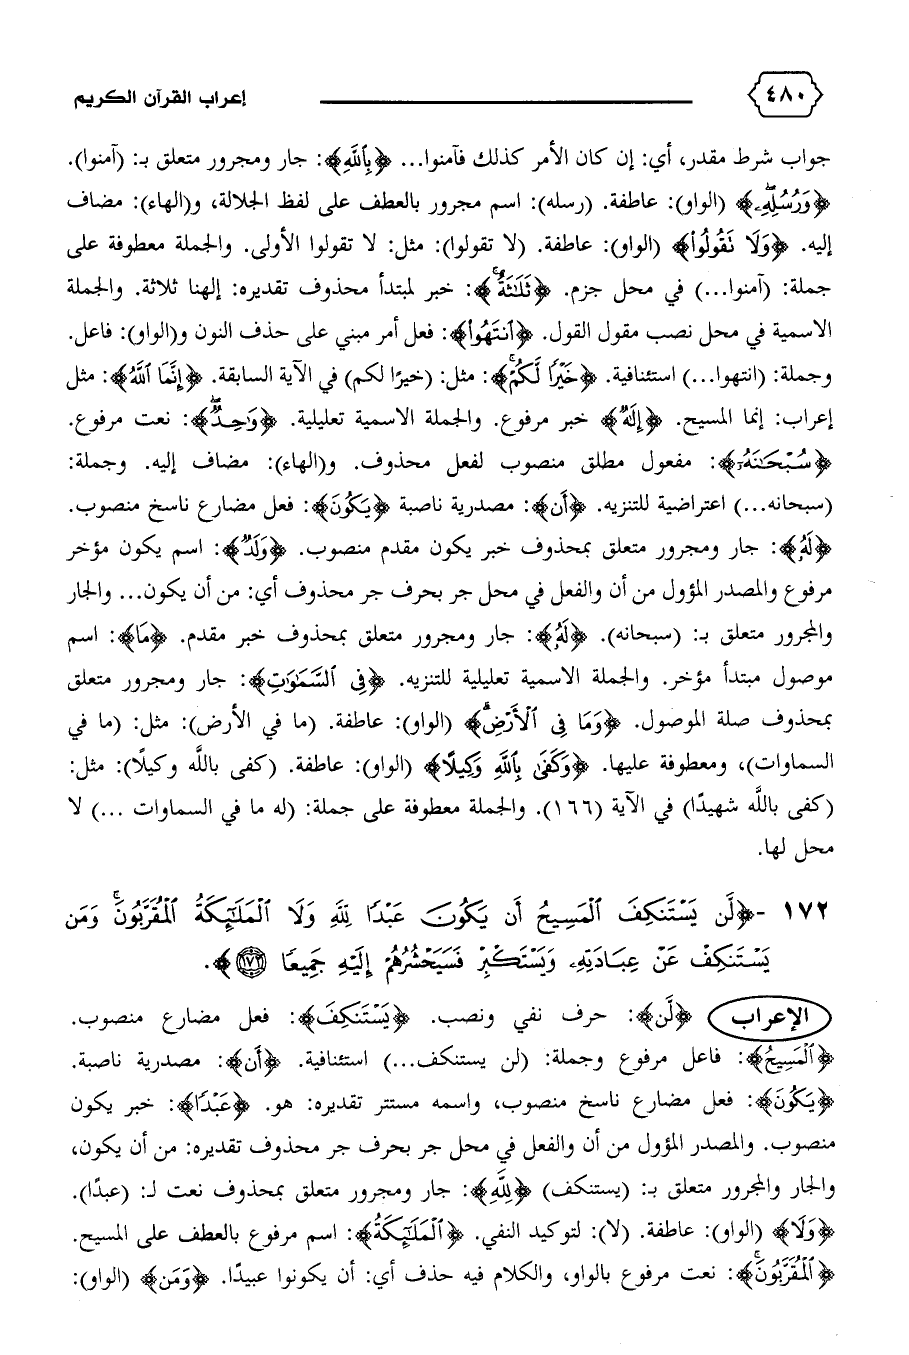 ٤٨٠ إعراب القرآن الكريم
جواب شرط مقدر، أي: إن كان الأمر كذلك فآمنوا... ﴿بِاللَّهِ﴾: جار ومجرور متعلق بـ: (آمنوا).
﴿وَرُسُلِهِۦ﴾ (الواو): عاطفة. (رسله): اسم مجرور بالعطف على لفظ الجلالة، و(الهاء): مضاف
إليه. ﴿وَلَا تَقُولُوا۟﴾ (الواو): عاطفة. (لا تقولوا): مثل: لا تقولوا الأولى. والجملة معطوفة على
جملة: (آمنوا...) في محل جزم. ﴿ثَلَـٰثَةٌ ۚ﴾: خبر لمبتدأ محذوف تقديره: إلهنا ثلاثة. والجملة
الاسمية في محل نصب مقول القول. ﴿ٱنتَهُوا۟﴾: فعل أمر مبني على حذف النون و(الواو): فاعل.
وجملة: (انتهوا...) استئنافية. ﴿خَيْرًا لَّكُمْ ۚ﴾: مثل: (خيرًا لكم) في الآية السابقة. ﴿إِنَّمَا ٱللَّهُ﴾: مثل
إعراب: إنما المسيح. ﴿إِلَـٰهٌ﴾ خبر مرفوع. والجملة الاسمية تعليلية. ﴿وَٰحِدٌ ۖ﴾: نعت مرفوع.
﴿سُبْحَـٰنَهُۥٓ﴾: مفعول مطلق منصوب لفعل محذوف. و(الهاء): مضاف إليه. وجملة:
(سبحانه...) اعتراضية للتنزيه. ﴿أَن﴾: مصدرية ناصبة ﴿يَكُونَ﴾: فعل مضارع ناسخ منصوب.
﴿لَهُۥ﴾: جار ومجرور متعلق بمحذوف خبر يكون مقدم منصوب. ﴿وَلَدٌ ۘ﴾: اسم يكون مؤخر
مرفوع والمصدر المؤول من أن والفعل في محل جر بحرف جر محذوف أي: من أن يكون... والجار
والمجرور متعلق بـ: (سبحانه). ﴿لَهُۥ﴾: جار ومجرور متعلق بمحذوف خبر مقدم. ﴿مَا﴾: اسم
موصول مبتدأ مؤخر. والجملة الاسمية تعليلية للتنزيه. ﴿فِى ٱلسَّمَـٰوَٰتِ﴾: جار ومجرور متعلق
بمحذوف صلة الموصول. ﴿وَمَا فِى ٱلْأَرْضِ ۗ﴾ (الواو): عاطفة. (ما في الأرض): مثل: (ما في
السماوات)، ومعطوفة عليها. ﴿وَكَفَىٰ بِٱللَّهِ وَكِيلًا﴾ (الواو): عاطفة. (كفى باللَّه وكيلًا): مثل:
(كفى باللَّه شهيدًا) في الآية (١٦٦). والجملة معطوفة على جملة: (له ما في السماوات ...) لا
محل لها.
١٧٢ - ﴿لَّن يَسْتَنكِفَ ٱلْمَسِيحُ أَن يَكُونَ عَبْدًا لِّلَّهِ وَلَا ٱلْمَلَـٰٓئِكَةُ ٱلْمُقَرَّبُونَ ۚ وَمَن
يَسْتَنكِفْ عَنْ عِبَادَتِهِۦ وَيَسْتَكْبِرْ فَسَيَحْشُرُهُمْ إِلَيْهِ جَمِيعًا ١٧٢﴾.
الإعراب ﴿لَّن﴾: حرف نفي ونصب. ﴿يَسْتَنكِفَ﴾: فعل مضارع منصوب.
﴿ٱلْمَسِيحُ﴾: فاعل مرفوع وجملة: (لن يستنكف...) استئنافية. ﴿أَن﴾: مصدرية ناصبة.
﴿يَكُونَ﴾: فعل مضارع ناسخ منصوب، واسمه مستتر تقديره: هو. ﴿عَبْدًا﴾: خبر يكون
منصوب. والمصدر المؤول من أن والفعل في محل جر بحرف جر محذوف تقديره: من أن يكون،
والجار والمجرور متعلق بـ: (يستنكف) ﴿لِّلَّهِ﴾: جار ومجرور متعلق بمحذوف نعت لـ: (عبدًا).
﴿وَلَا﴾ (الواو): عاطفة. (لا): لتوكيد النفي. ﴿ٱلْمَلَـٰٓئِكَةُ﴾: اسم مرفوع بالعطف على المسيح.
﴿ٱلْمُقَرَّبُونَ ۚ﴾: نعت مرفوع بالواو، والكلام فيه حذف أي: أن يكونوا عبيدًا. ﴿وَمَن﴾ (الواو):